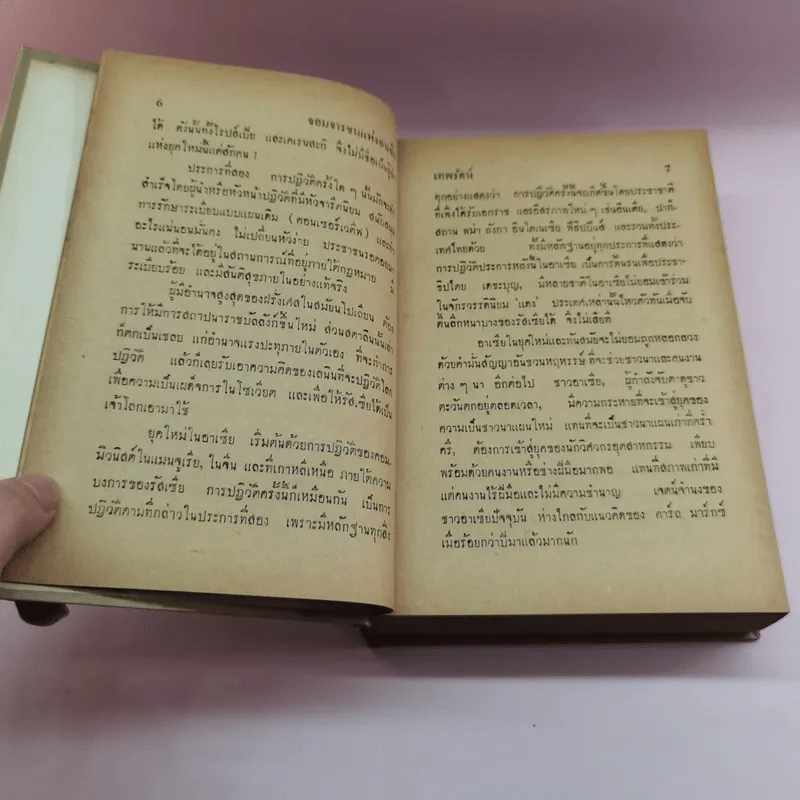 6
จอมจารชนแห่งเอเซีย
ได้ ดังนั้นทั้งโรปส์เปีย และเคเรนสะกี จึงไม่มีชื่อเป็นผู้
แห่งยุคใหม่นี้แต่สักคน !
ประการที่สอง การปฏิวัติครั้งใด ๆ นั้นมักจะ
สำเร็จโดยผู้นำหรือหัวหน้าปฏิวัติที่มีหัวจารีตนิยม สนับสนุน
การรักษาระเบียบแบบแผนเดิม (คอนเซอร์เวตีฟ) และ
อะไรแน่นอนมั่นคง ไม่เปลี่ยนหัวง่าย ประชาชนรอคอยมา
นานแล้วที่จะได้อยู่ในสถานการณ์ที่อยู่ภายใต้กฎหมาย มี
ระเบียบร้อย และมีสันติสุขภายในอย่างแท้จริง
ผู้มีอำนาจสูงสุดของฝรั่งเศสในสมัยนโปเลียน ต้อง
การให้มีการสถาปนาราชบัลลังก์ขึ้นใหม่ ส่วนสตาลินนั้นเล่า
ก็ตกเป็นเชลย แก่อำนาจแรงปะทุภายในตัวเอง ที่จะทำการ
ปฏิวัติ แล้วก็เลยรับเอาความคิดของเลนินที่จะปฏิวัติโลก
เพื่อความเป็นเผด็จการในโซเวียต และเพื่อให้รัสเซียได้เป็น
เจ้าโลกเอามาใช้
ยุคใหม่ในอาเซีย เริ่มต้นด้วยการปฏิวัติของคอม
มิวนิสต์ในแมนจูเรีย, ในจีน และที่เกาหลีเหนือ ภายใต้ความ
บงการของรัสเซีย การปฏิวัติครั้งนี้ก็เหมือนกัน เป็นการ
ปฏิวัติตามที่กล่าวในประการที่สอง เพราะมีหลักฐานทุกสิ่ง
เทพรัตน์
7
ทุกอย่างแสดงว่า การปฏิวัติครั้งนี้จะเกิดขึ้นโดยประชาชาติ
ที่เพิ่งได้รับเอกราช และอิสรภาพใหม่ ๆ เช่นอินเดีย, ปากี-
สถาน พม่า ลังกา อินโดเนเซีย ฟิลิปปินส์ และรวมทั้งประ-
เทศไทยด้วย ทั้งมีหลักฐานอยู่ทุกประการที่แสดงว่า
การปฏิวัติประการหลังนี้ในอาเซีย เป็นการดิ้นรนเพื่อประชา-
ธิปไตย เดชะบุญ, มีหลายชาติในอาเซียไม่ยอมเข้าร่วม
ในจักรวรรดินิยม "แดง" ประเทศเหล่านั้นไหวตัวทันเมื่อจับ
ต้นลึกหนาบางของรัสเซียได้ จึงไม่เสียที
อาเซียในยุคใหม่และทันสมัยจะไม่ยอมถูกหลอกลวง
ด้วยคำมั่นสัญญาอันชวนหฤหรรษ์ ที่จะช่วยชาวนาและคนงาน
ต่าง ๆ นา อีกต่อไป ชาวอาเซีย, ผู้กำลังจับตาดูชาว
ตะวันตกอยู่ตลอดเวลา, มีความกระหายที่จะเข้าสู่ยุคของ
ความเป็นชาวนาแผนใหม่ แทนที่จะเป็นชาวนาแผนเก่าที่คร่ำ
ครึ, ต้องการเข้าสู่ยุคของนักวิศวกรอุตสาหกรรม เพียบ
พร้อมด้วยคนงานหรือช่างฝีมือมากพอ แทนที่สภาพเก่าที่มี
แต่คนงานไร้ฝีมือและไม่มีความชำนาญ เจตน์จำนงของ
ชาวอาเซียปัจจุบัน ห่างไกลกับแนวคิดของ คาร์ล มาร์กซ์
เมื่อร้อยกว่าปีมาแล้วมากนัก